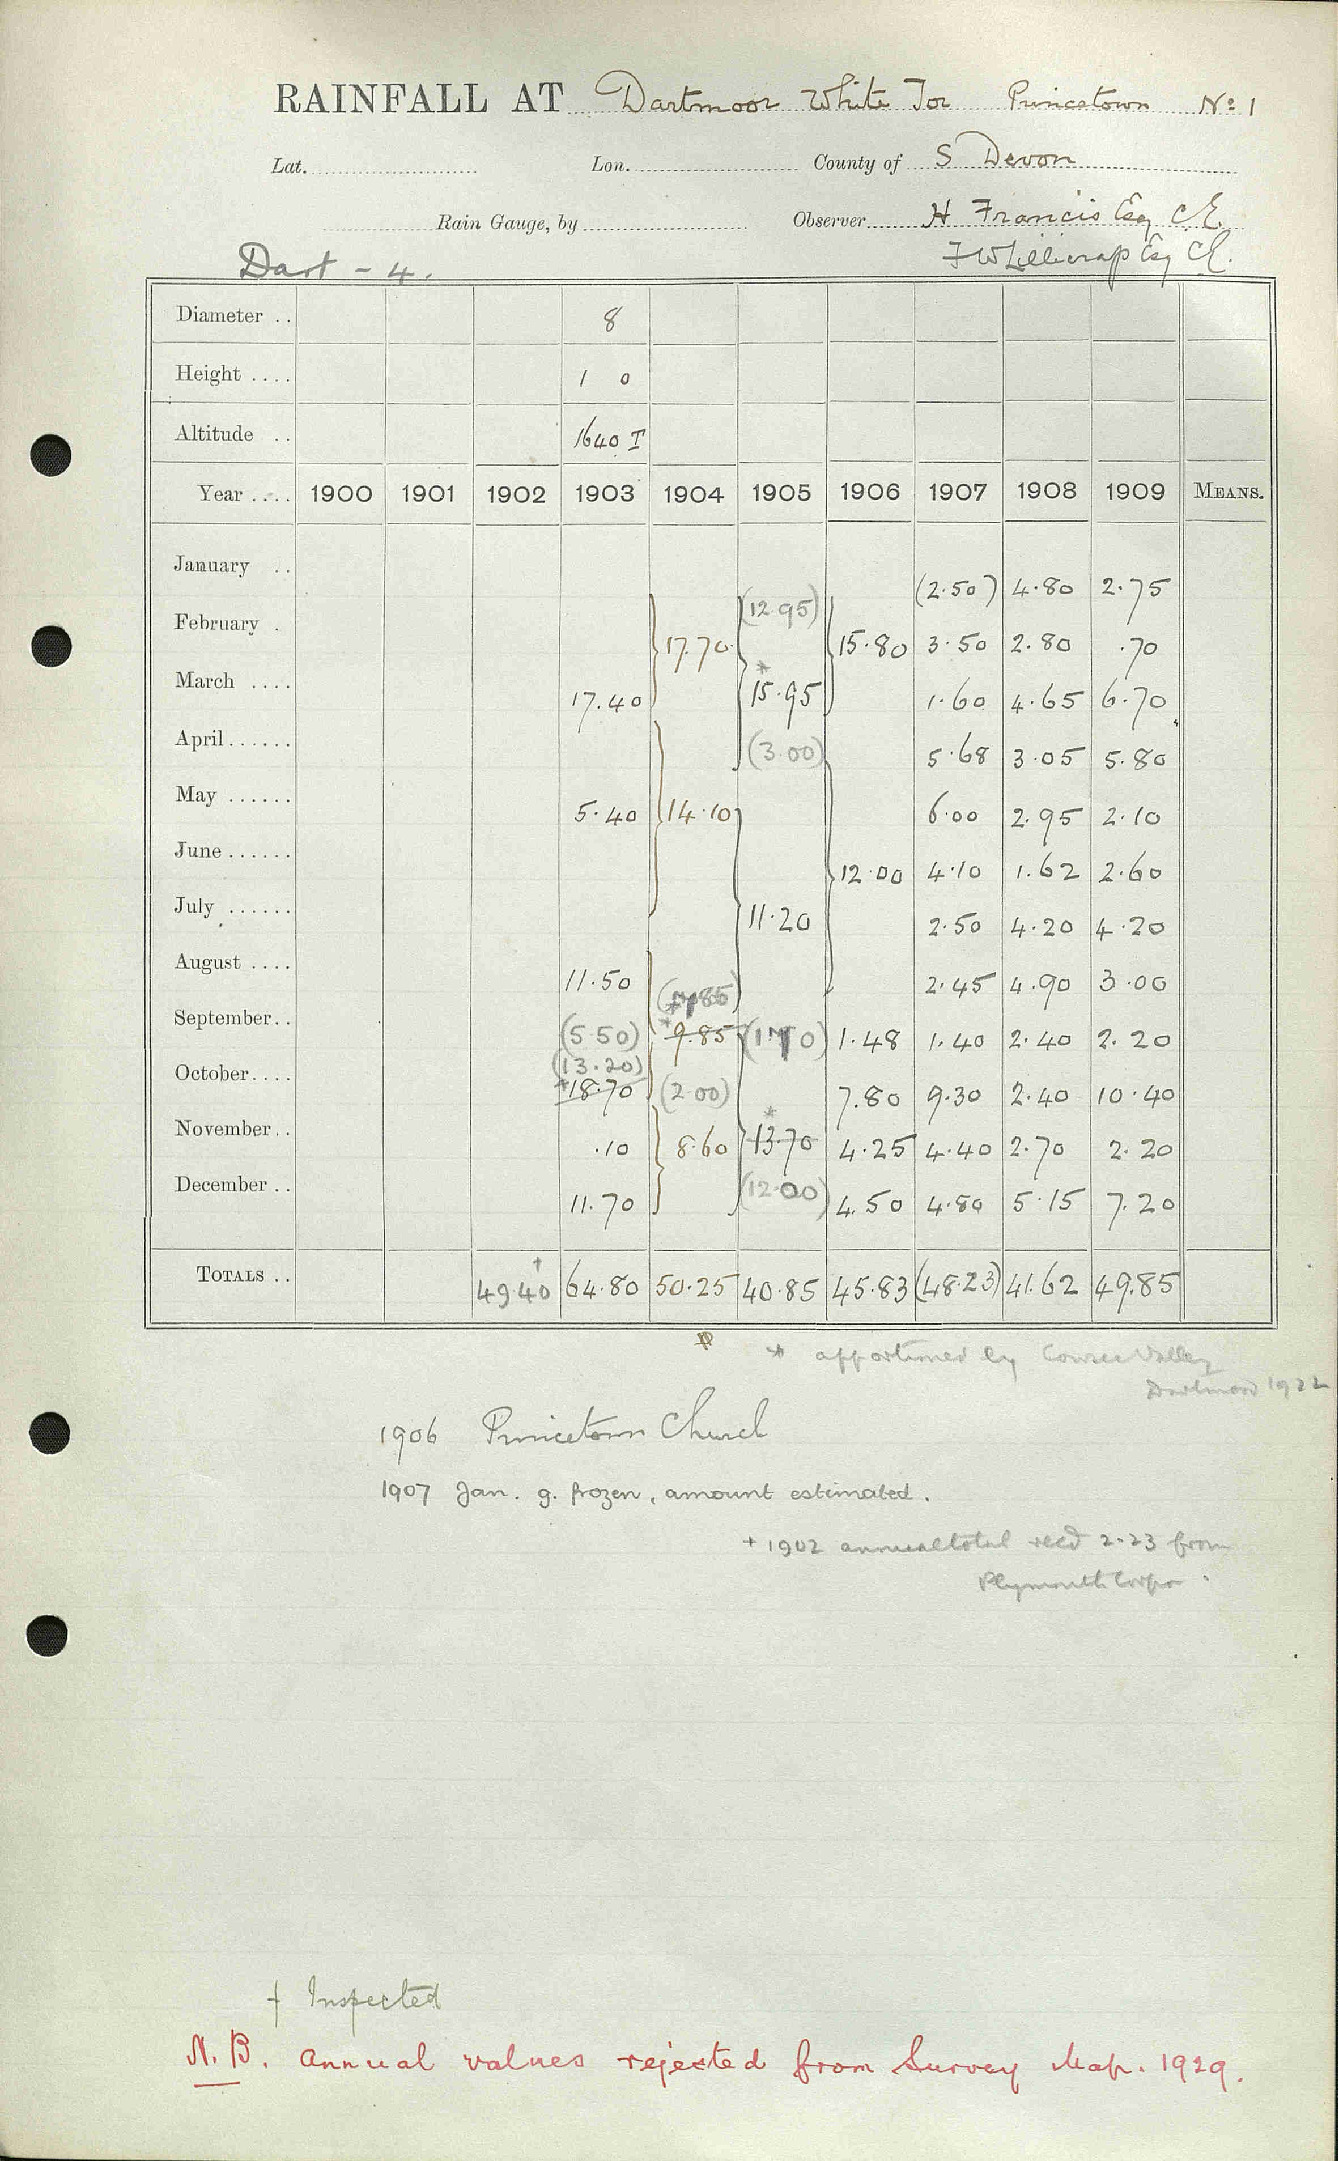 RAINFALL AT Dartmoor White Tor Princetown No 1
Lat. Lon. County of S Devon
Rain Gauge, by Observer H Francis Esq C.E.
Dart - 4. F W Lillicrap Esq C.E.
Diameter .. 8
Height .... 1 0
Altitude .. 1640 T
Year .... 1900 1901 1902 1903 1904 1905 1906 1907 1908 1909 MEANS.
January .. (2.50) 4.80 2.75
(12.95)
February . 17.70 15.80 3.50 2.80 .70
March .... 17.40 * 15.95 1.60 4.65 6.70
April...... (3.00) 5.68 3.05 5.80
May ...... 5.40 14.10 6.00 2.95 2.10
June ...... 12.00 4.10 1.62 2.60
July ...... 11.20 2.50 4.20 4.20
August .... 11.50 2.45 4.90 3.00
(7.85)
September.. (5.50) * 9.85 (1.70) 1.48 1.40 2.40 2.20
(13.20)
October.... *18.70 (2.00) 7.80 9.30 2.40 10.40
November.. .10 8.60 * 13.70 4.25 4.40 2.70 2.20
December .. 11.70 (12.00) 4.50 4.80 5.15 7.20
TOTALS .. 49.40 + 64.80 50.25 40.85 45.83 (48.23) 41.62 49.85
* apportioned by Cowsic Valley
Dartmoor 1922
1906 Princetown Church
1907 Jan. g. frozen, amount estimated.
+ 1902 annual total recd 2.23 from
Plymouth Corpn.
+ Inspected
N.B. Annual values rejected from Survey Map. 1929.